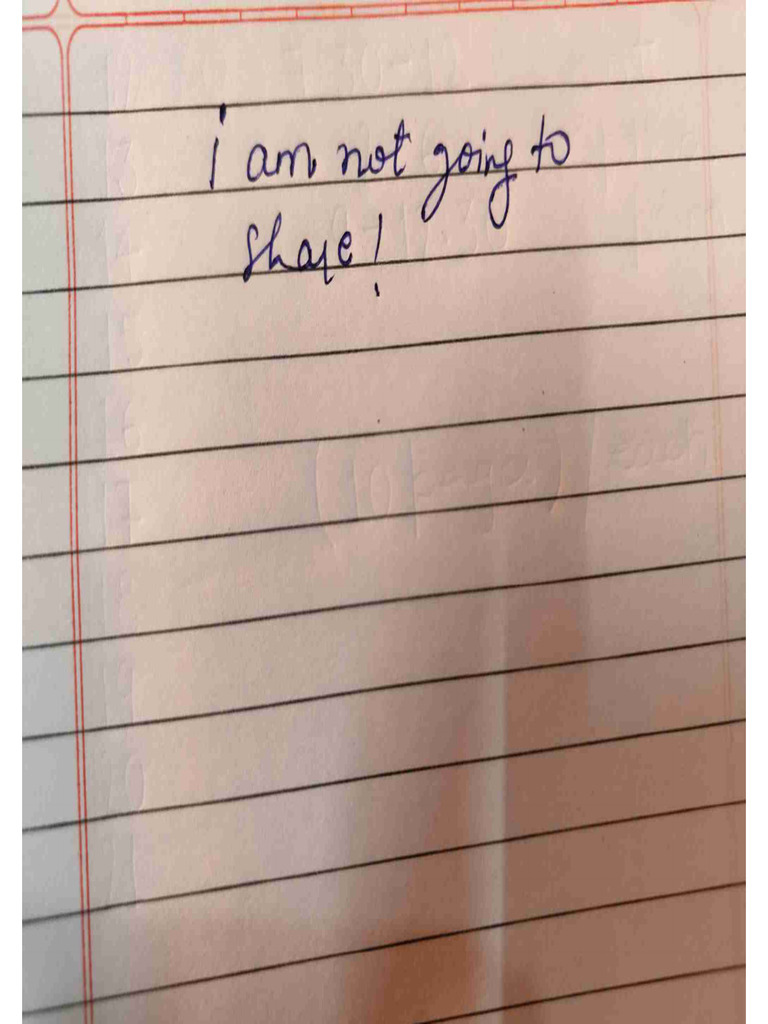 i am not going to
share!